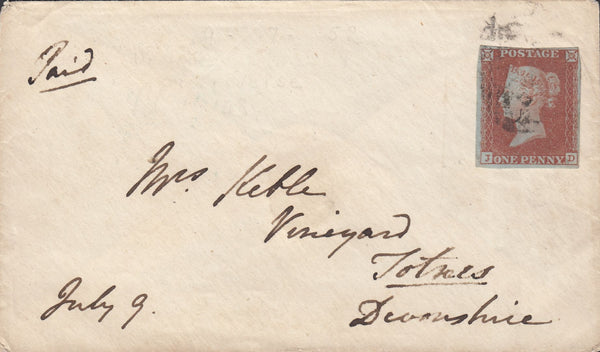 Paid
POSTAGE
J ONE PENNY D
Mrs Keble
Vineyard
Totnes
Devonshire
July 9.